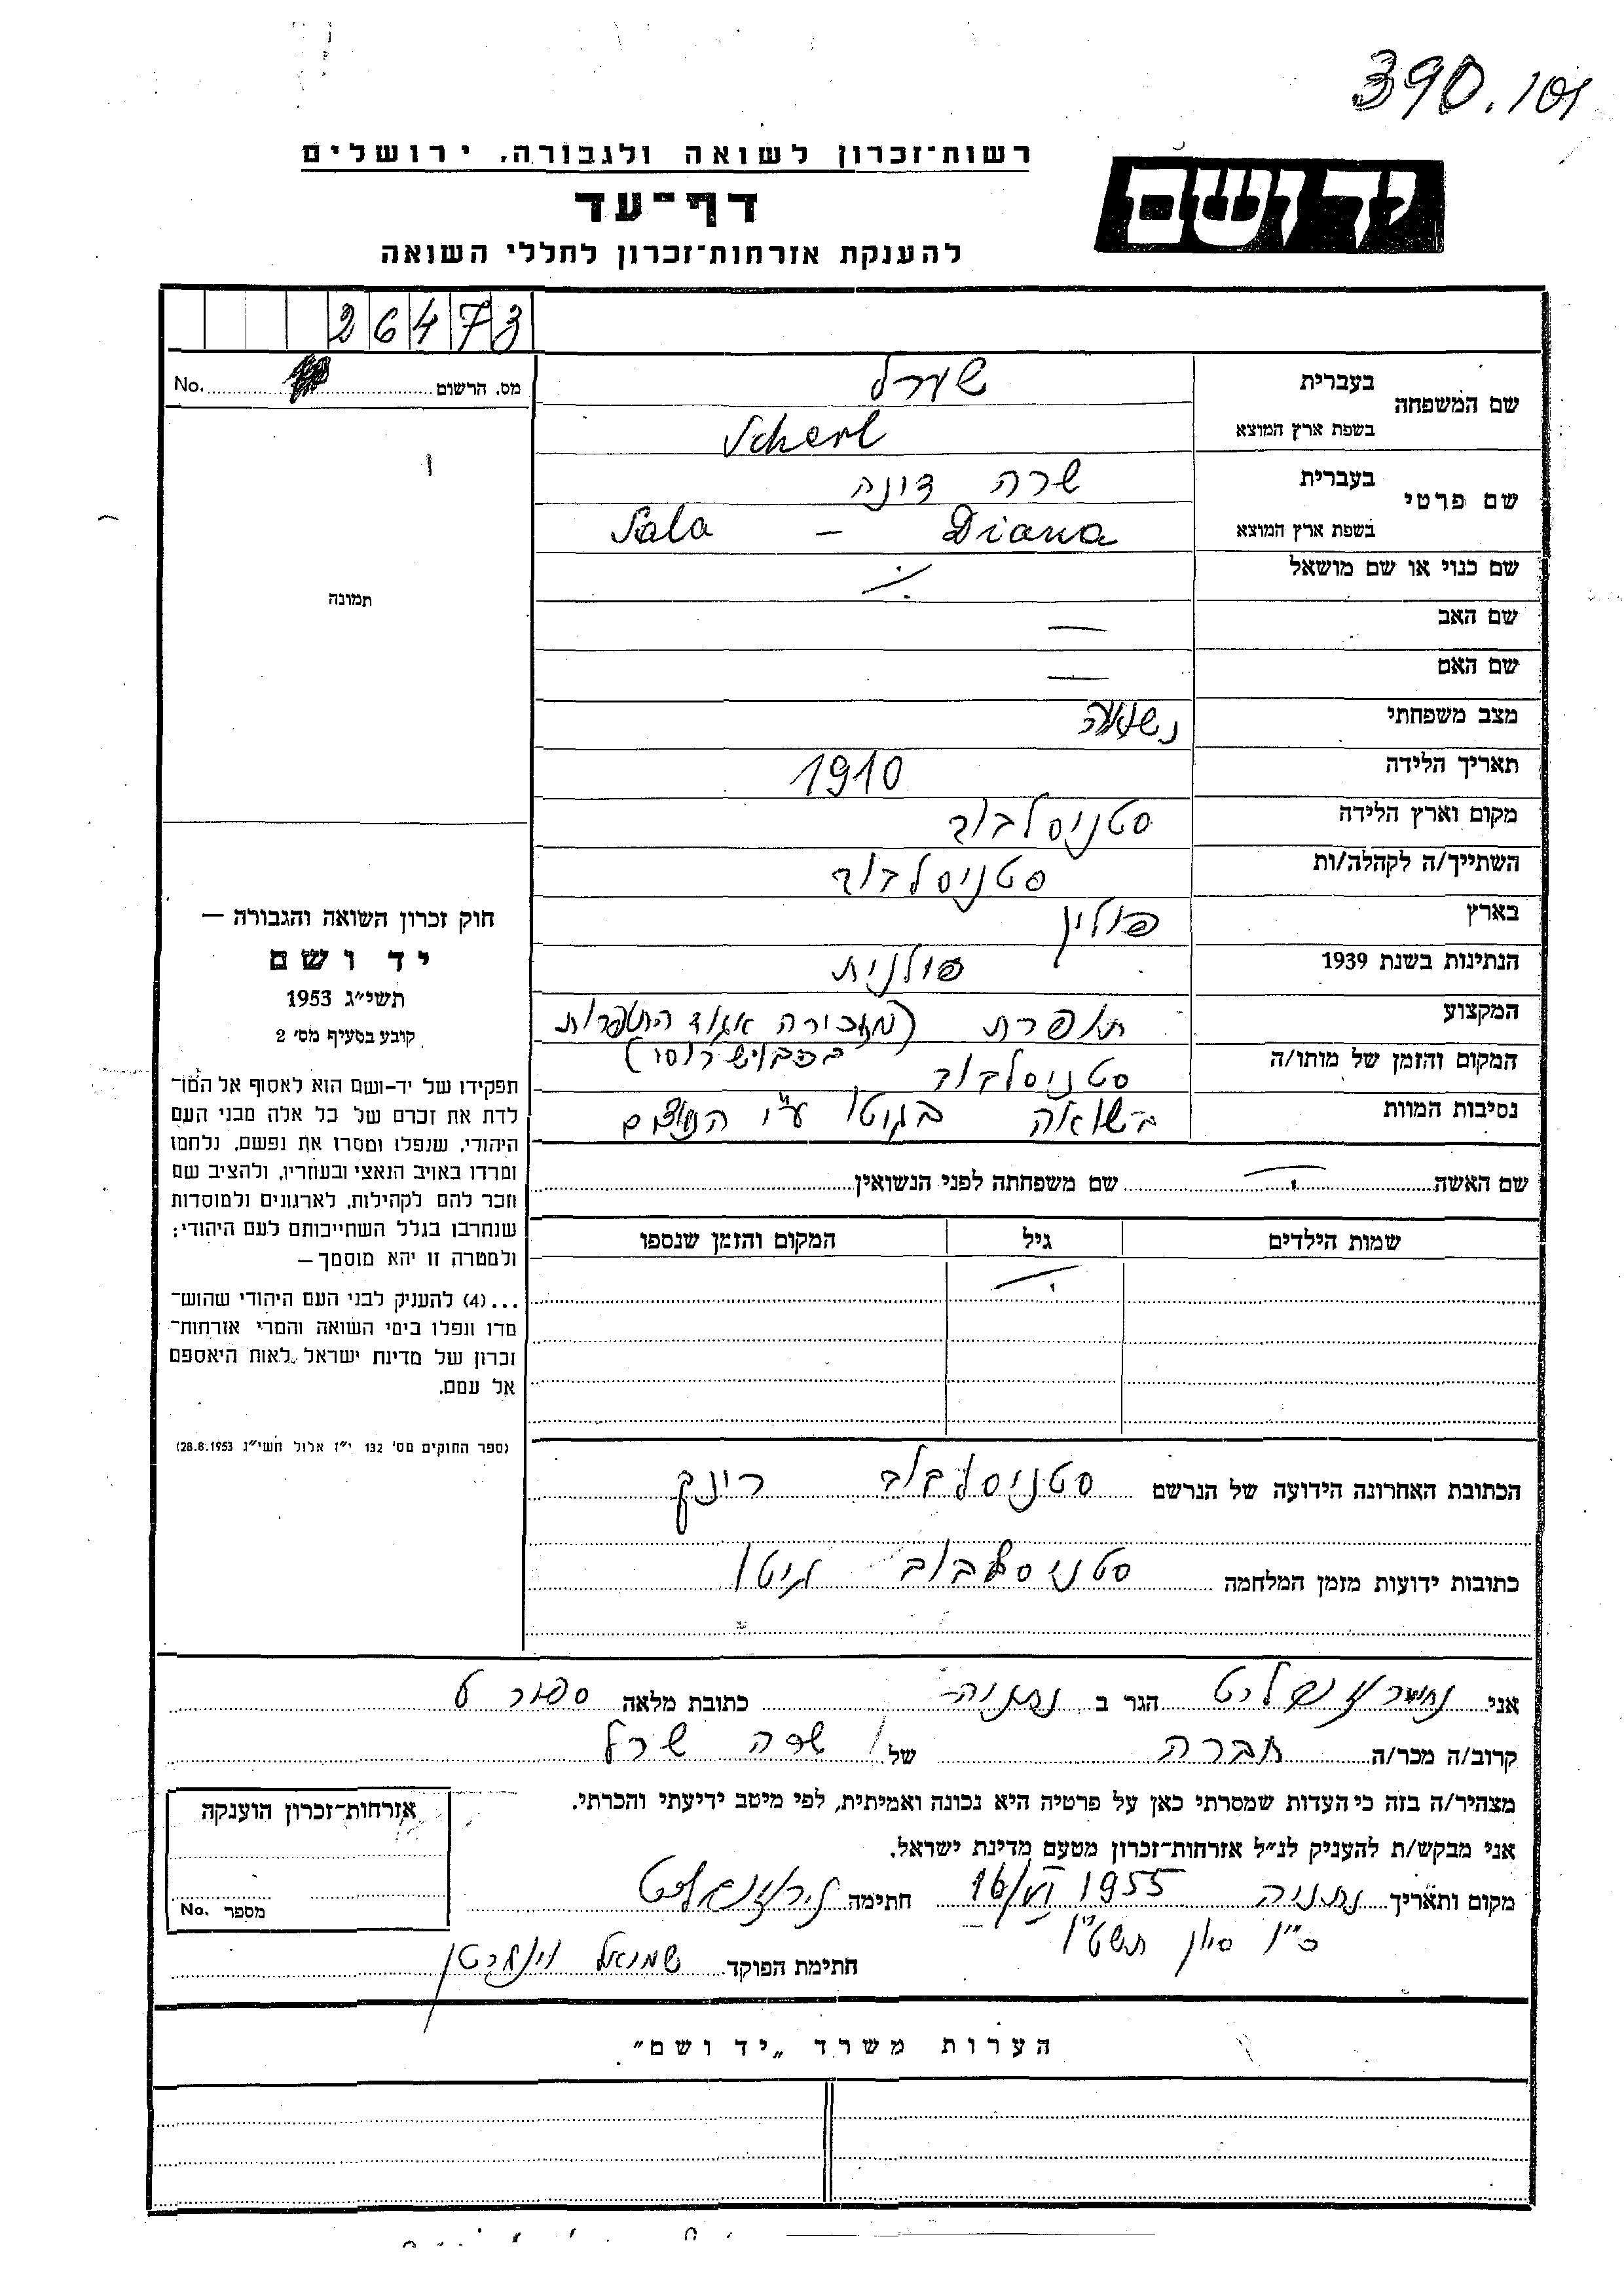 390.101
רשות־זכרון לשואה ולגבורה, ירושלים
יד ושם
דף־עד
להענקת אזרחות־זכרון לחללי השואה
26473
מס. הרשום No.
שם המשפחה
בעברית שערל
בשפת ארץ המוצא Scherl
שם פרטי
בעברית שרה דינה
בשפת ארץ המוצא Sala – Diana
שם כנוי או שם מושאל
שם האב —
שם האם —
מצב משפחתי נשואה
תאריך הלידה 1910
מקום וארץ הלידה סטניסלבוב
השתייך/ה לקהלה/ות סטניסלבוב
בארץ פולין
הנתינות בשנת 1939 פולנית
המקצוע תופרת (מזכירה אגוד התופרות
בכבוש רוסי)
המקום והזמן של מותו/ה סטניסלבוב
נסיבות המוות בשואה בגטו ע"י הנאצים
שם האשה שם משפחתה לפני הנשואין
שמות הילדים גיל המקום והזמן שנספו
הכתובת האחרונה הידועה של הנרשם סטניסלבוב רינק
כתובות ידועות מזמן המלחמה סטניסלבוב גיטו
תמונה
חוק זכרון השואה והגבורה —
יד ושם
תשי״ג 1953
קובע בסעיף מס׳ 2
תפקידו של יד־ושם הוא לאסוף אל המו־
לדת את זכרם של כל אלה מבני העם
היהודי, שנפלו ומסרו את נפשם, נלחמו
ומרדו באויב הנאצי ובעוזריו, ולהציב שם
וזכר להם לקהילות, לארגונים ולמוסדות
שנחרבו בגלל השתייכותם לעם היהודי;
ולמטרה זו יהא מוסמך —
...(4) להעניק לבני העם היהודי שהוש־
מדו ונפלו בימי השואה והמרי אזרחות־
זכרון של מדינת ישראל לאות היאספם
אל עמם.
(ספר החוקים מס׳ 132 י״ז אלול תשי״ג 28.8.1953)
אני הגר ב נתניה כתובת מלאה
קרוב/ה מכר/ה חברה של שרה שרל
מצהיר/ה בזה כי העדות שמסרתי כאן על פרטיה היא נכונה ואמיתית, לפי מיטב ידיעתי והכרתי.
אני מבקש/ת להעניק לנ״ל אזרחות־זכרון מטעם מדינת ישראל.
מקום ותאריך נתניה 16/VI 1955 חתימה
כ"ו סיון תשט"ו
חתימת הפוקד שמואל
אזרחות־זכרון הוענקה
מספר No.
הערות משרד „יד ושם״